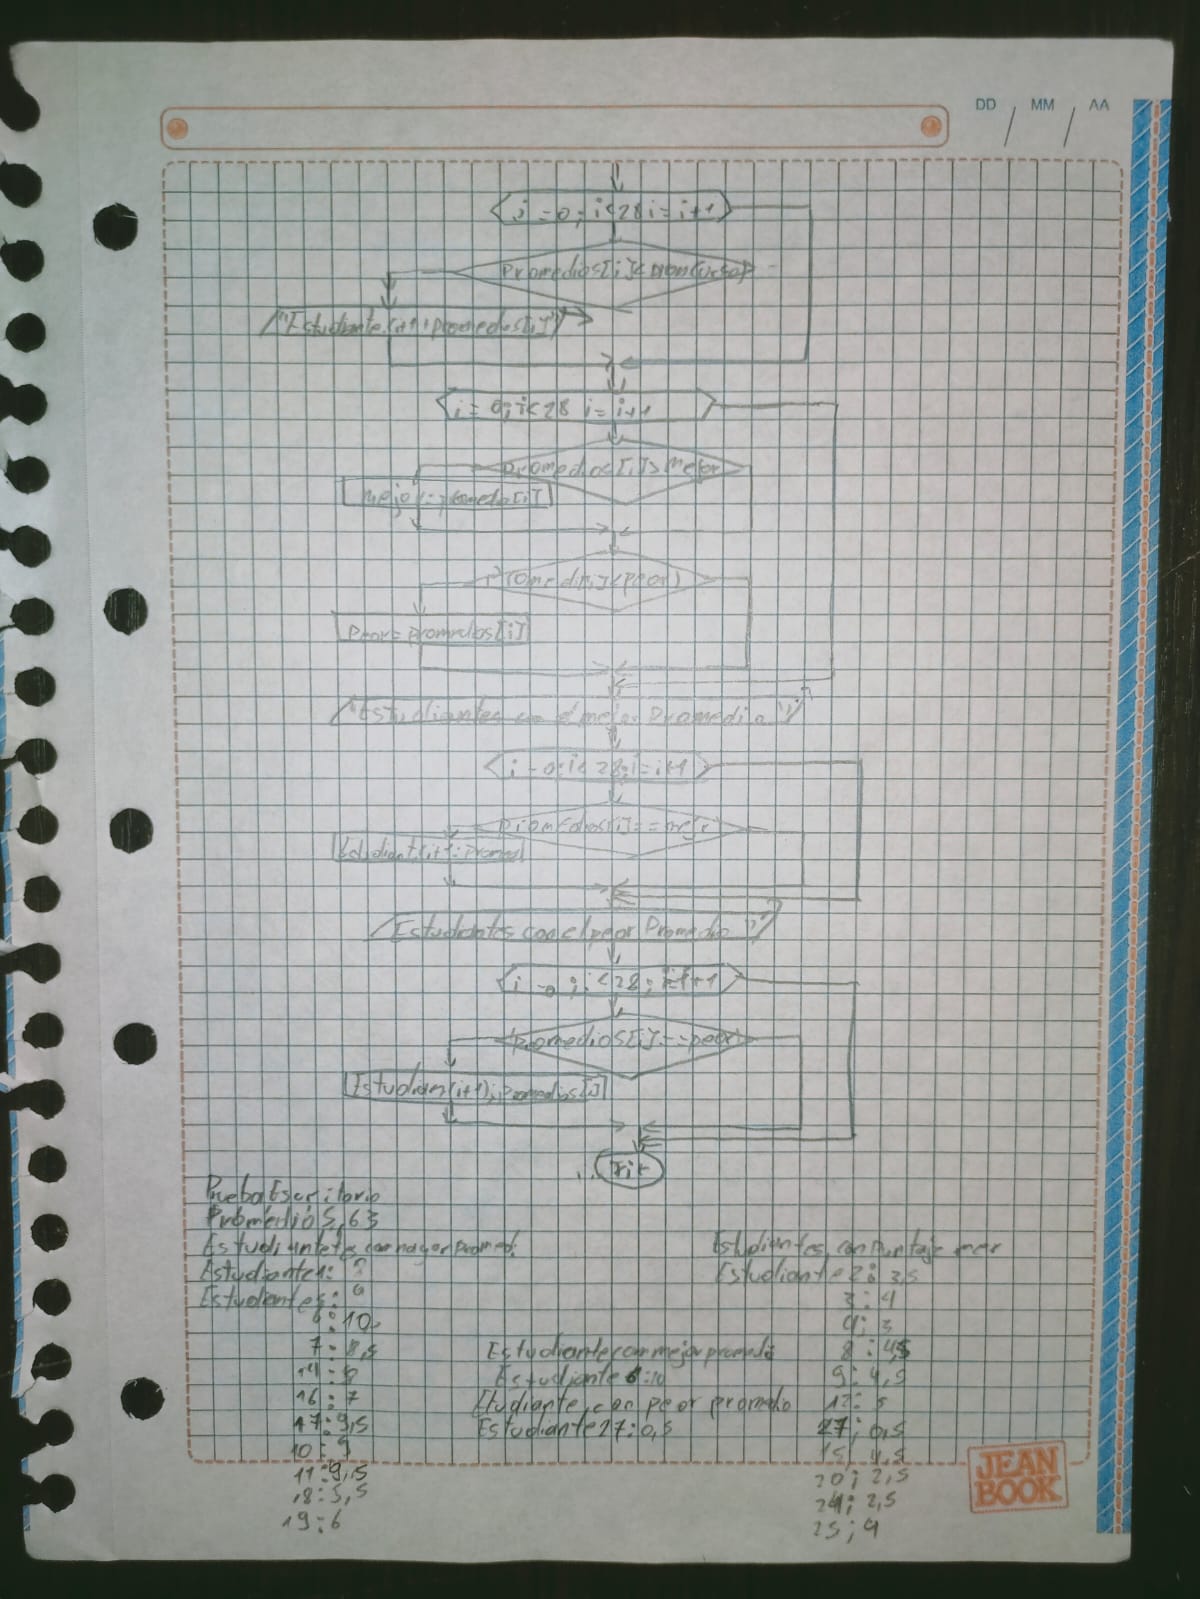 DD MM AA
i = 0; i < 28 i = i+1
Promedios[i] < promcurso)
"Estudiante (i+1): promedios[i]"
i = 0; i < 28 i = i++
promedios[i] > mejor
mejor = promedio[i]
Promedi[i] < peor)
Peor = promedios[i]
"Estudiantes con el mejor Promedio"
i = 0; i < 28; i = i+1
promedios[i] == mejr
Estudiant(i+1): promed
Estudiantes con el peor Promedio"
i = 0; i < 28; i=i+1
promedios[i] == peor
Estudian (i+1); promedios[i]
Prueba Escritorio
Promedio 5,63
Estudiantes con mayor promed:
Estudiante 1:
Estudiante 5: 9
6: 10
7: 8,5
14: 8
16: 7
17: 9,5
10: 9
11: 9,5
18: 5,5
19: 6
Estudiante con mejor promedio
Estudiante 6: 10
Etudiante, con peor promedo
Estudiante 27: 0,5
Estudiantes, con Puntaje mer
Estudiante 2: 3,5
3: 4
4: 3
8: 4,5
9: 4,5
12: 5
27; 0,5
15; 4,5
20; 2,5
24; 2,5
25; 4
JEAN
BOOK